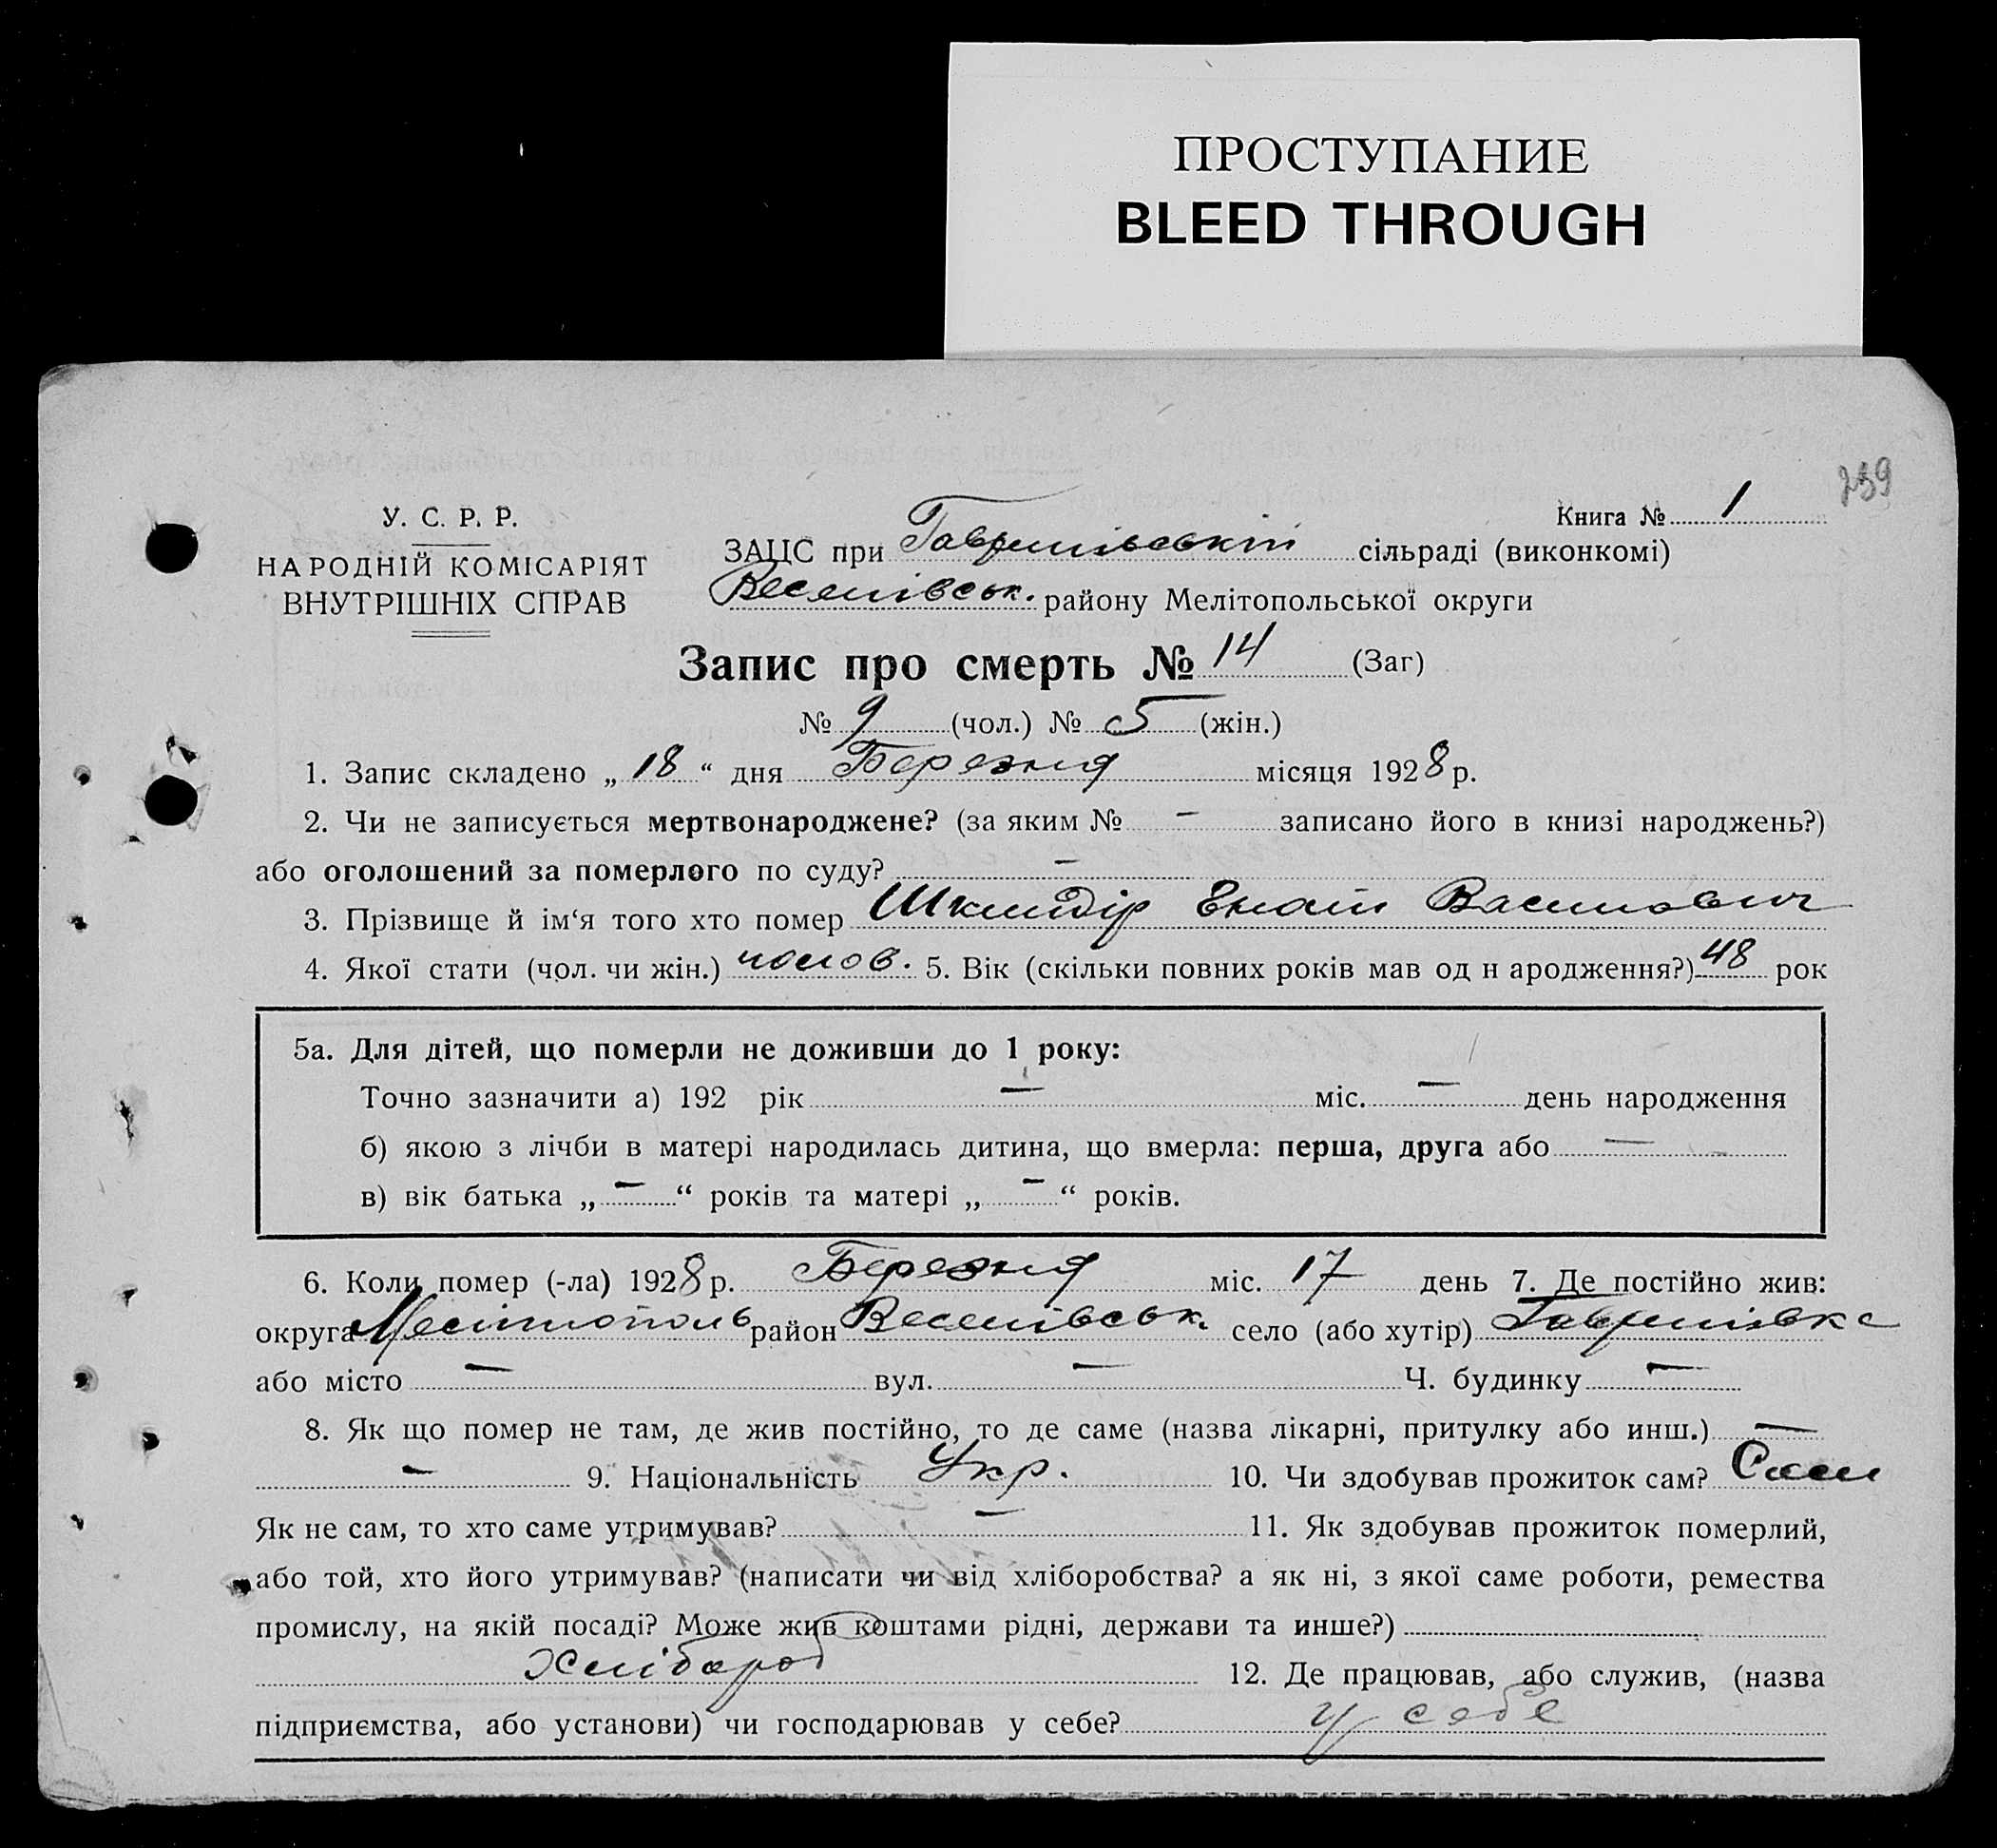 ПРОСТУПАНИЕ
BLEED THROUGH
239
У. С. Р. Р.
НАРОДНІЙ КОМІСАРІЯТ
ВНУТРІШНІХ СПРАВ
Книга № 1
ЗАЦС при Гаврилівській сільраді (виконкомі)
Веселівськ. району Мелітопольської округи
Запис про смерть № 14 (Заг)
№ 9 (чол.) № 5 (жін.)
1. Запис складено „ 18 “ дня Березня місяця 1928 р.
2. Чи не записується мертвонароджене? (за яким № — записано його в книзі народжень?)
або оголошений за померлого по суду? —
3. Прізвище й ім‘я того хто помер Шкиндір Гнат Василович
4. Якої стати (чол. чи жін.) чолов. 5. Вік (скільки повних років мав од н ародження?) 48 рок
5а. Для дітей, що померли не доживши до 1 року:
Точно зазначити а) 192 рік — міс. — день народження
б) якою з лічби в матері народилась дитина, що вмерла: перша, друга або —
в) вік батька „ — “ років та матері „ — “ років.
6. Коли помер (-ла) 1928 р. Березня міс. 17 день 7. Де постійно жив:
округа Мелітополь район Веселівськ. село (або хутір) Гаврилівка
або місто — вул. — Ч. будинку —
8. Як що помер не там, де жив постійно, то де саме (назва лікарні, притулку або инш.) —
— 9. Національність Укр. 10. Чи здобував прожиток сам? Сам
Як не сам, то хто саме утримував? — 11. Як здобував прожиток померлий,
або той, хто його утримував? (написати чи від хліборобства? а як ні, з якої саме роботи, ремества
промислу, на якій посаді? Може жив коштами рідні, держави та инше?)
Хлібороб 12. Де працював, або служив, (назва
підприємства, або установи) чи господарював у себе? у себе